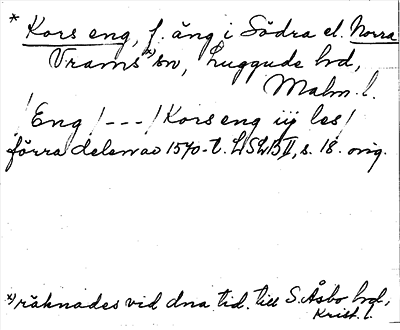 * Kors eng, f. äng i Södra el. Norra
Vrams x) sn, Luggude hd,
Malm. l.
/Eng/---/Kors eng iij les/
förra delen av 1570-t. LSLB II, s. 18. orig.
x) räknades vid dna tid. till S. Åsbo hd,
Krist. l.